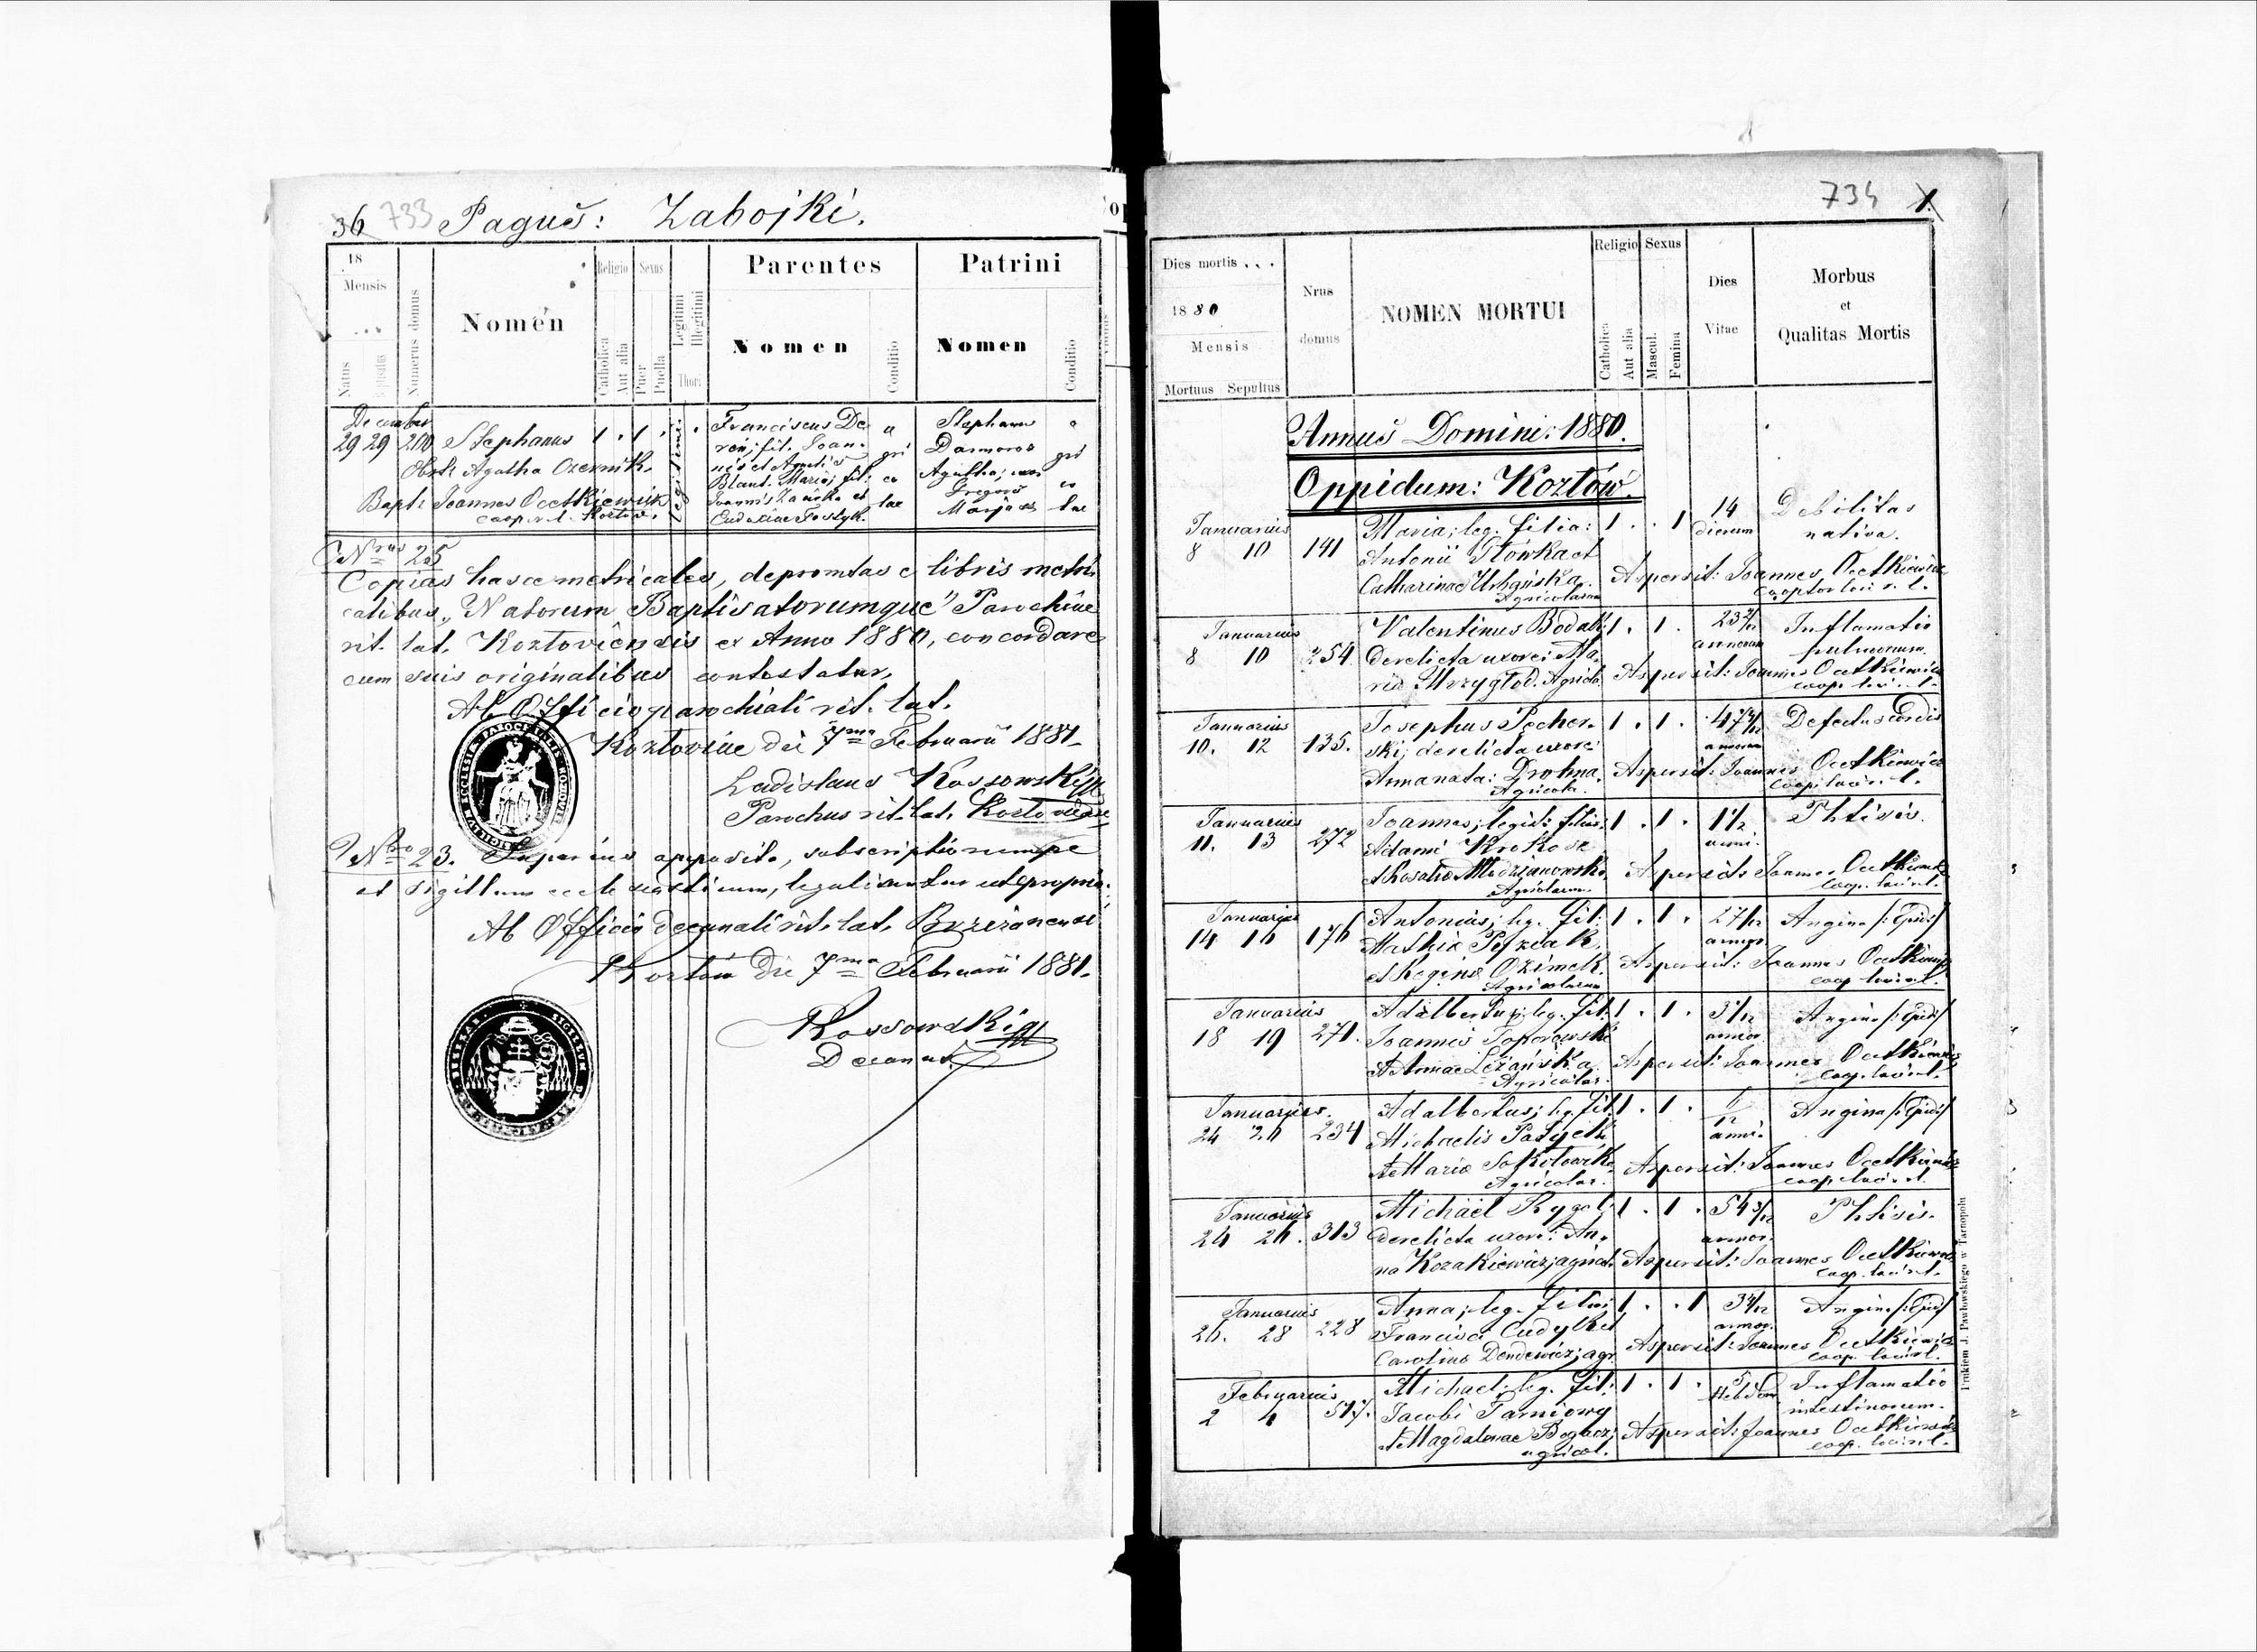 36 733 Paguš: Zabojki.
18
Mensis
Natus
Numerus domus
Nomen
Religio
Catholica
Aut alia
Sexus
Puer
Puella
Legitimi
Illegitimi
Thori
Parentes
Nomen
Conditio
Patrini
Nomen
Conditio
December
29 29 200 Stephanus 1 . 1 . legitimi
Obst: Agatha Czernik.
Bapt: Joannes Ocetkiewicz
coop. r. l. Kozłow.
Franciscus De-
reń; fil. Joan-
nis et Agnetis
Blaut. Maria; fil:
a
gri
co
lae
Stephanus
Darmoros
Agatha; uxor
Gregorii
a
gri
co
lae
Nrus 25
Copias hasce metricales, depromtas e libris metri-
calibus „Natorum Baptisatorumque" Parochiae
rit. lat. Kozłoviensis ex Anno 1880, concordare
cum suis originalibus contestatur.
Ab Officio parochiali rit. lat.
Kozłoviae die 7ma Februarii 1881.
Ladislaus Kossowski
Parochus rit. lat. Kozłoviensis
Nro 23. Superius apposita, subscriptio nempe
et sigillum ecclesiasticum, legalisantur ut propria.
Ab Officio decanali rit. lat. Brzezanensi
Kozłów die 7ma Februarii 1881.
Kossowski
Decanus
734 1.
Dies mortis . . .
1880
Mensis
Mortuus Sepultus
Nrus
domus
NOMEN MORTUI
Religio
Catholica
Aut alia
Sexus
Mascul.
Femina
Dies
Vitae
Morbus
et
Qualitas Mortis
Annuš Domini: 1880.
Oppidum: Kozłów.
Januarius
8 10 141
Maria; leg. filia:
Antonii Słowka et
Catharinae
Agricolarum
1 . . 1
14
dierum
Debilitas
nativa.
Aspersit: Joannes Ocetkiewicz
Januarius
8 10 254
Valentinus
derelicta uxore: Ma-
ria Mrzygłod. Agricola.
1 . 1 .
annorum
Inflamatio
pulmonum.
Aspersit: Joannes Ocetkiewicz
coop. loci r. l.
Januarius
10. 12 135.
Josephus Pecher-
ski; derelicta uxore:
Anna nata:
Agricola.
1 . 1 .
annorum
Defectus cordis
Aspersit: Joannes Ocetkiewicz
coop. loci r. l.
Januarius
11. 13 272
Joannes; legit: filius:
Adami Krokosz
et Rosaliae
Agricolarum.
1 . 1 .
1 1/2
anni.
Phtisis.
Aspersit: Joannes Ocetkiewicz
coop. loci r. l.
Januarius
14 16 176
Antonius; leg. fil:
Mathiae
et Reginae Ozimek.
Agricolarum
1 . 1 .
2 7/12
annor.
Angina /: Epid:/
Aspersit: Joannes Ocetkiewicz
coop. loci r. l.
Januarius
18 19 271.
Adalbertus; leg. fil:
Joannis Toporowski
et Annae Leżańska.
Agricolar.
1 . 1 .
3 1/12
annor.
Angina /: Epid:/
Aspersit: Joannes Ocetkiewicz
coop. loci r. l.
Januarius.
24 26 234
Adalbertus; leg. fil:
Michaelis
et Mariae Sokołowska
Agricolar.
1 . 1 .
anni.
Angina /: Epid:/
Aspersit: Joannes Ocetkiewicz
coop. loci r. l.
Januarius
24 26. 313
Michaël
derelicta uxore: An-
na Kozakiewicz; agricol.
1 . 1 .
54 3/12
annor.
Phtisis.
Aspersit: Joannes Ocetkiewicz
coop. loci r. l.
Januarius
26. 28 228
Anna; leg. filia:
Francisci Cudyk et
Carolinae Dendewicz; agr.
1 . . 1
3 4/12
annor.
Angina /: Epid:/
Aspersit: Joannes Ocetkiewicz
coop. loci r. l.
Februarius
2 4 317.
Michael; leg. fil:
Jacobi Tarniowy
et Magdalenae Bogacz;
agricol.
1 . 1 .
5
Hebdom.
Inflamatio
intestinorum.
Aspersit: Joannes Ocetkiewicz
coop. loci r. l.
Drukiem J. Pawłowskiego w Tarnopolu